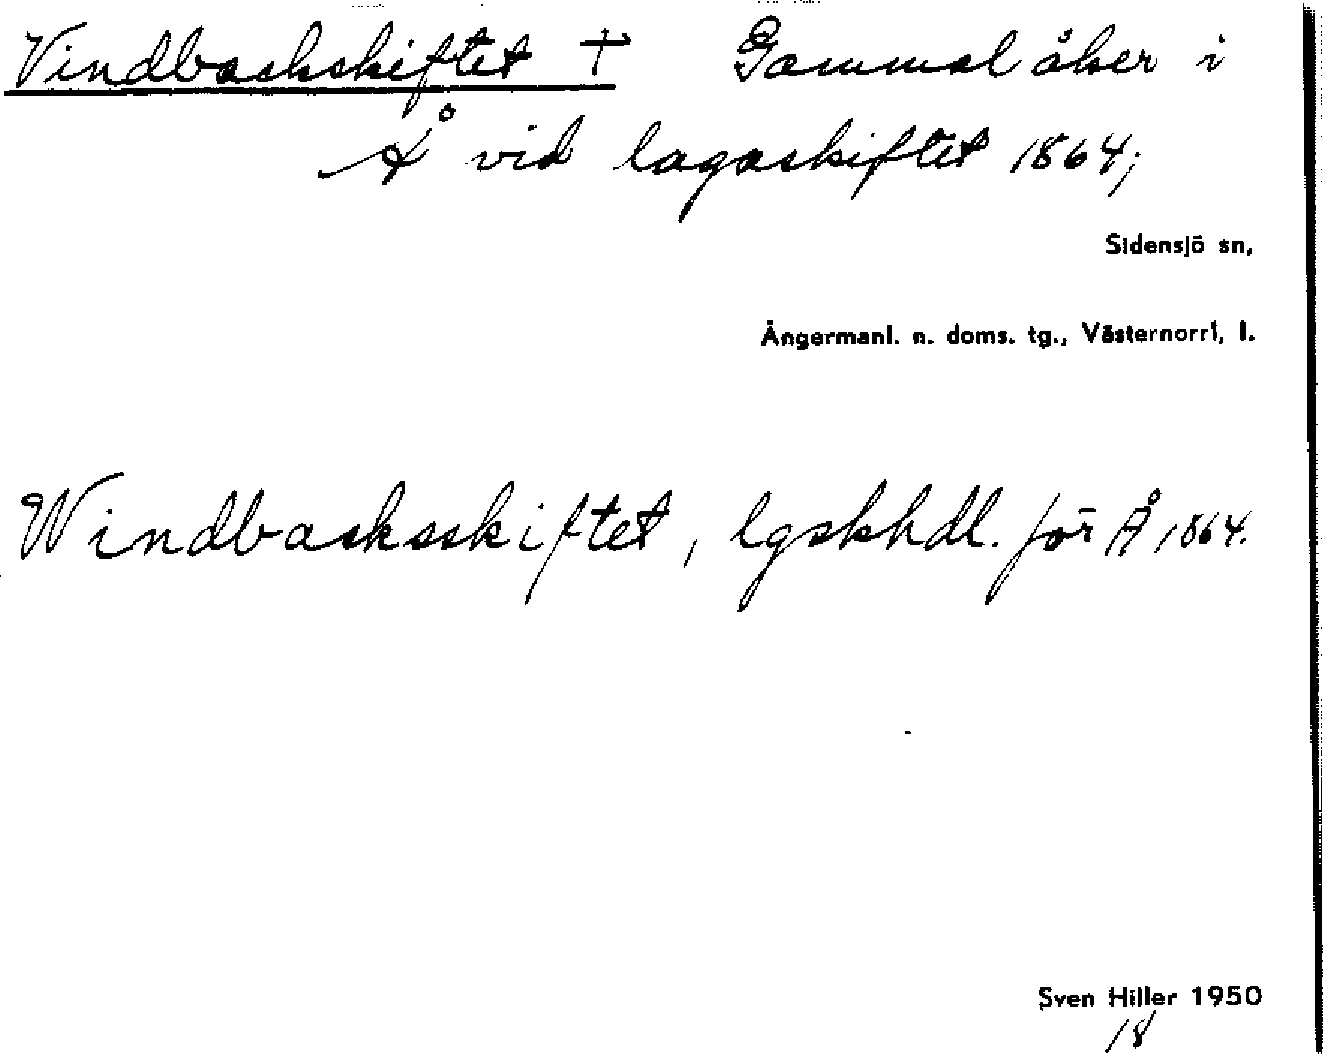 Vindbackskiftet † Gammal åker i
Å vid lagaskiftet 1864;
Sidensjö sn,
Ångermanl. n. doms. tg., Västernorrl. l.
Windbacksskiftet, lgskhdl. för Å 1864.
Sven Hiller 1950
18